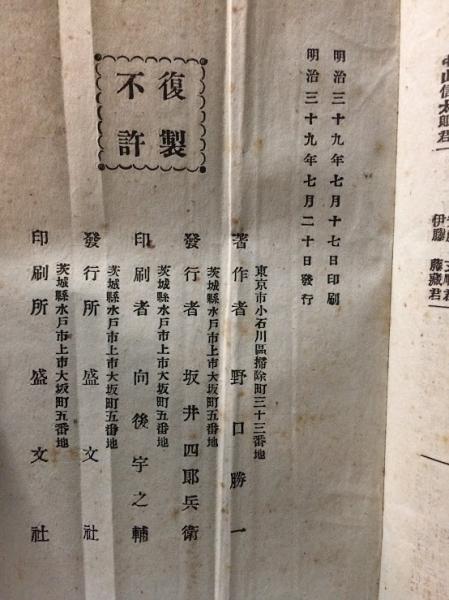 中山信太郎君
伊藤 藤藏君
明治三十九年七月十七日印刷
明治三十九年七月二十日發行
復製
不許
東京市小石川區掃除町三十三番地
著作者 野口勝一
茨城縣水戸市上市大坂町五番地
發行者 坂井四郎兵衛
茨城縣水戸市上市大坂町五番地
印刷者 向後宇之輔
茨城縣水戸市上市大坂町五番地
發行所 盛文社
茨城縣水戸市上市大坂町五番地
印刷所 盛文社